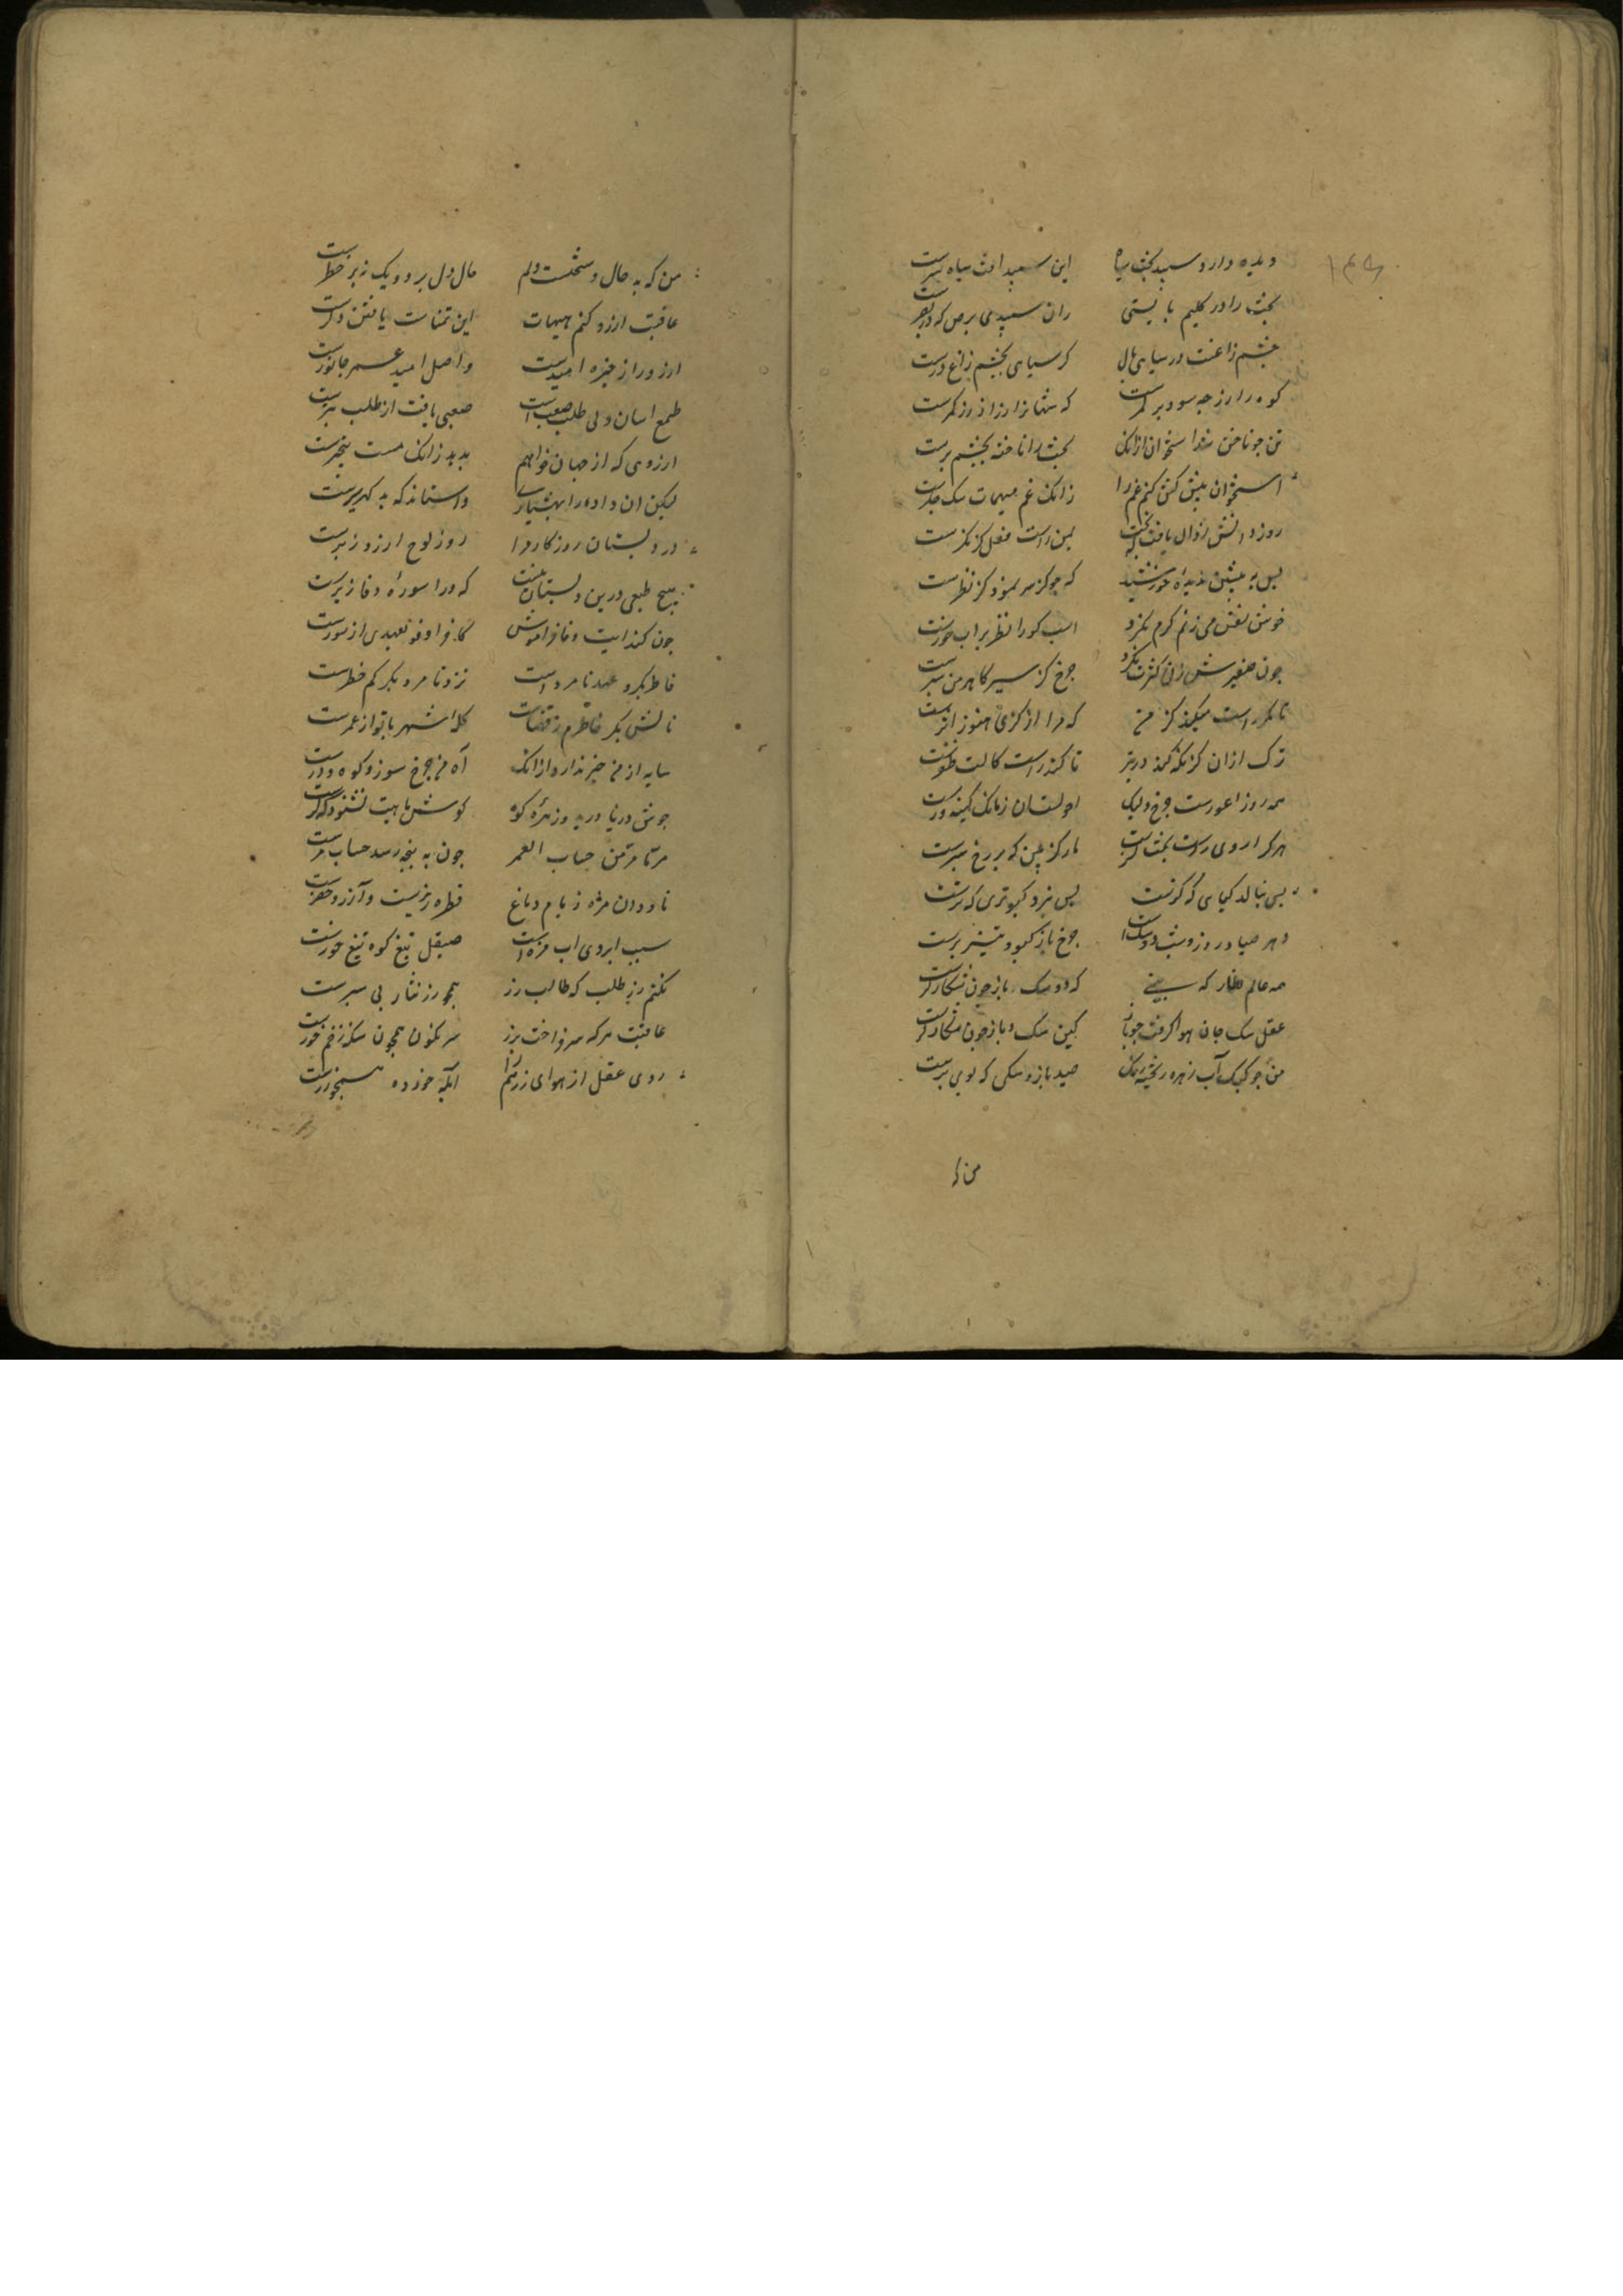 ۱۴۵
دیده دارد سپید بخت سیاه این سپید آفت سیاه سرست
بخت را در کلیم بایستی ران سپیدی برص که در بصرست
چشم زاغست در سیاهی بال کر سیاهی بچشم زاغ درست
کوه را زر چه سود بر کمرست که شهانرا زر از در کمرست
تن چو ناخن شد استخوان ازانک بخت را ناخنه بچشم برست
استخوان پیش کش کنم غم را زانک غم میهمان سک جکرست
روز دانش زوال یافت که بخت بمن راست فعل کژ نکرست
بس به پیشین ندیده خورشید که چو کژ سر نمود کژ نظرست
خوش نفس می زنم کرم نکرد اسب کور را نظر بر آب خورست
چون صفیرش زنی کژت نکرد چرخ کژ سیر کاهرمن سیرست
تا مکر راست میکند کژ من که مرا از کژی هنوز اثرست
ترک ازان کژ نکه کند در تیر تا کند راست کالت ظفرست
همه روز اعورست چرخ ولیک احولست آن زمانک کینه ورست
هر کرا روی راست بخت کژست مار کژ بین که بر رخ سپرست
بس نبالد کیاهی که کژست بس نپرد کبوتری که ترست
دهر صیاد و روز و شب دو سک است چرخ باز کبود تیز پرست
همه عالم شکار که بینی که دو سک و باز چون شکارکرست
عقل سک جان هوا کرفت چو باز کین سک و باز چون شکارکرست
من چو کبک آب زهره ریخته رنک صید باز و سکی که بوی برست
من که
من که به حال و سختست دلم حال دل بر دو یک ز بر خطرست
عاقبت آرزو کنم هیهات این تمناست یافتن دکرست
آرزو را ذخیره امیدست واصل امید عمر جانورست
طمع آسان ولی طلب صعب است صعبی یافت از طلب بترست
آرزوی که از جهان خواهم بدید زانک مست بیخبرست
لیکن آن داده را بهشیاری واستاند که بد کهر پسرست
در دبستان روزکار مرا روز لوح آرزو ز برست
هیچ طفلی درین دبستان نیست که ورا سوره وفا ز برست
چون کند آیت وفا فراموش کز اوفوا بعهدی از سورست
خاطرم بکر و عهد نامرد است نزد نامرد بکر کم خطرست
نالش بکر خاطرم ز قضاست کله شهربانو از عمرست
سایه از من خبر ندارد ازانک آه من چرخ سوز و کوه درست
جوش دریا درید زهره کوه کوش ماهی نشنود که کرست
مرتا مرتبن حساب العمر چون به پنجه رسد حساب مرست
ناودان مژه ز بام دماغ قطره ریزست و آرزو خضرست
سبب آبروی آب مژه است صیقل تیغ کوه تیغ خورست
نکنم زر طلب که طالب زر همچو زر نثار پی سپرست
عاقبت هر که سر فراخت بزر سرنکون همچو سکه زخم خورست
روی عقل از هوای زر هم را آبله خورده همچو زرست